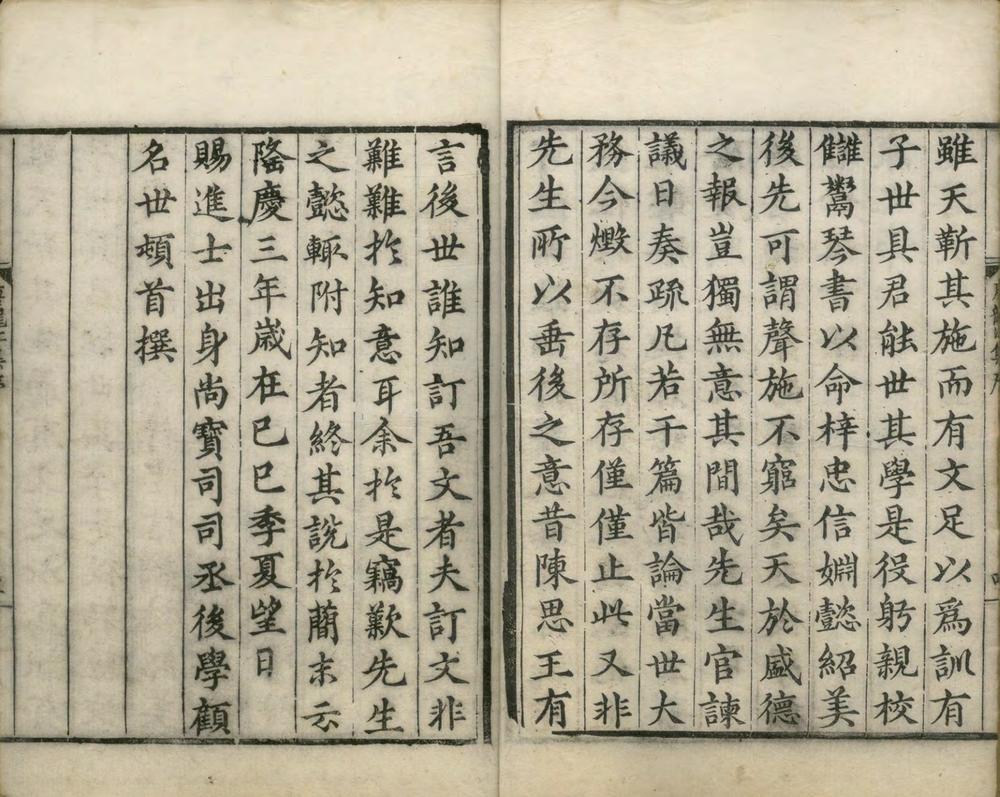 雖天靳其施而有文足以爲訓有
子世具君能世其學是役躬親校
讎鬻琴書以命梓忠信婣懿紹美
後先可謂聲施不窮矣天於盛德
之報豈獨無意其間哉先生官諫
議日奏疏凡若干篇皆論當世大
務今燬不存所存僅僅止此又非
先生所以垂後之意昔陳思王有
言後世誰知訂吾文者夫訂文非
難難扵知意耳余扵是竊歎先生
之懿輒附知者終其說扵蕳末云
隆慶三年歲在己巳季夏望日
賜進士出身尚寶司司丞後學顧
名世頓首撰